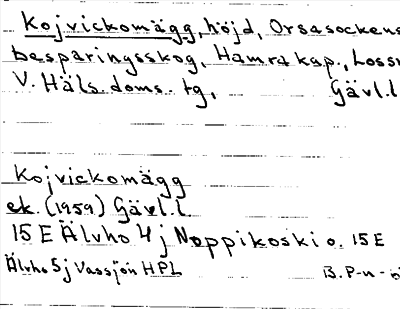 Kojvickomägg, höjd, Orsasockens
besparingsskog, Hamra kap.,
V. Häls. doms. tg, Gävl.l
Kojvickomägg
ek. (1959) Gävl.l.
15 E Älvho 4 j Noppikoski o. 15 E
Älvho 5 j Vassjön HPL